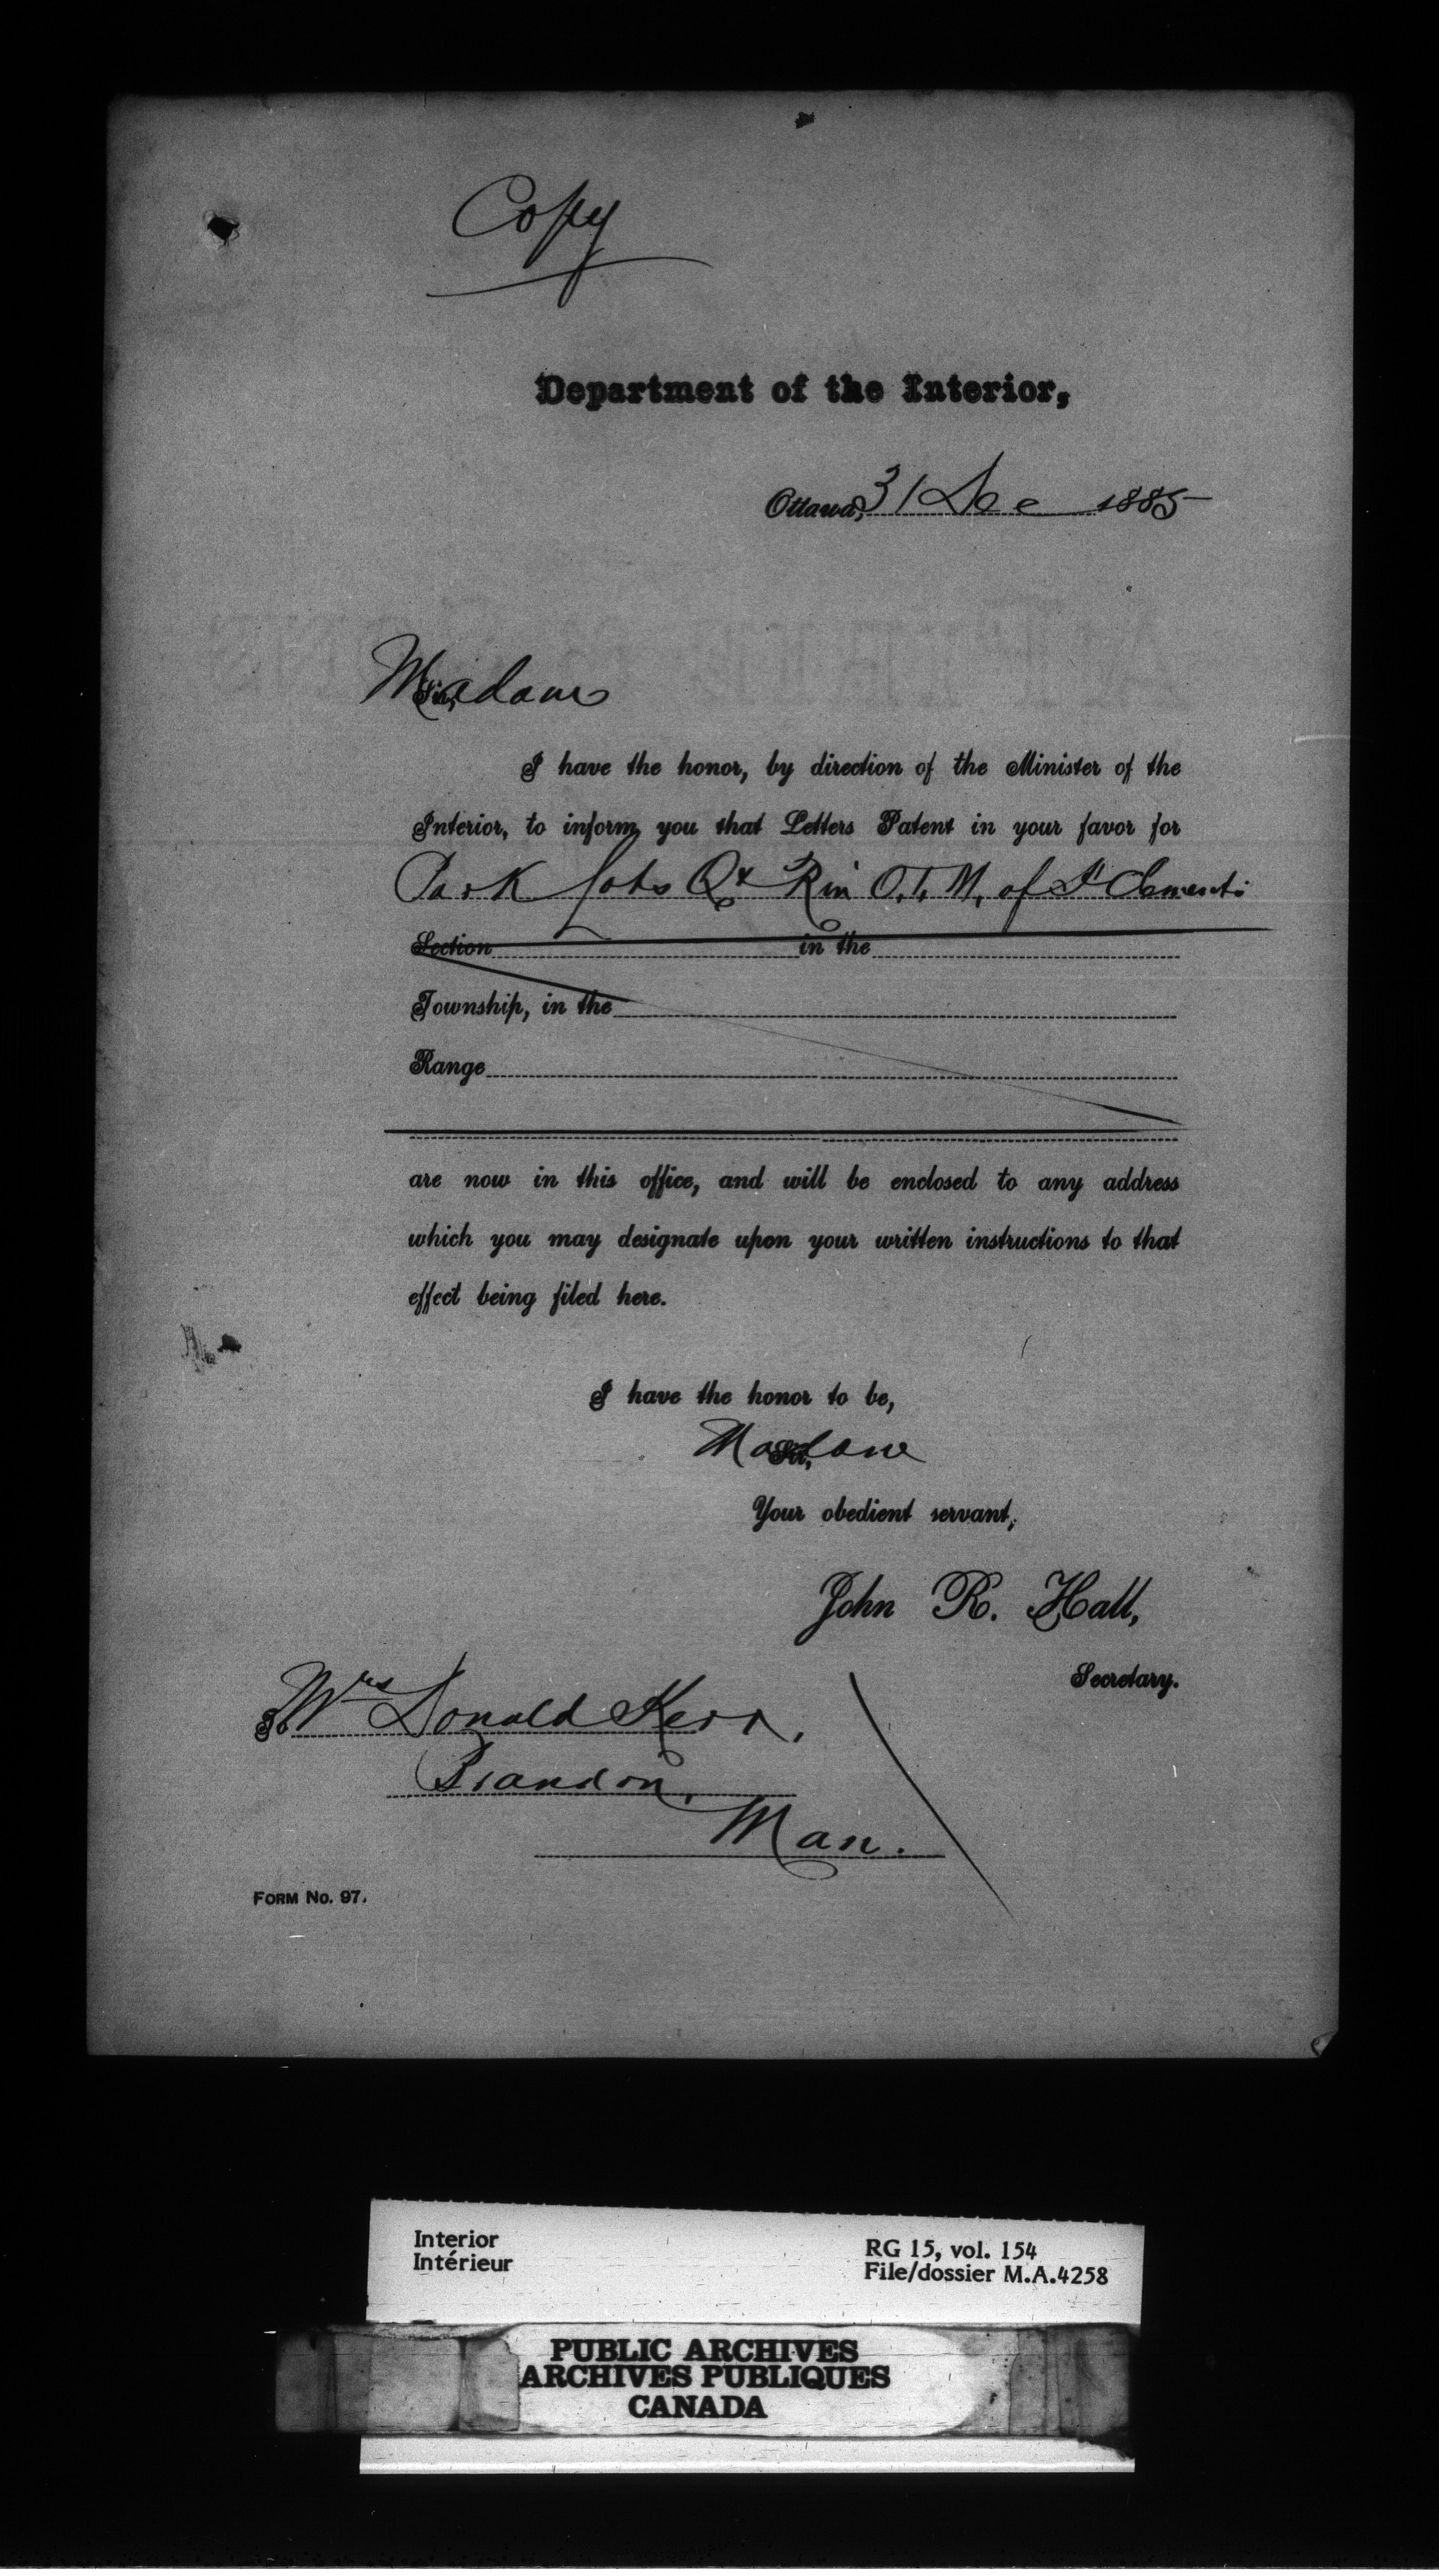 Copy
Department of the Interior,
Ottawa, 31 Dec 1885
Madam
Sir,
I have the honor, by direction of the Minister of the
Interior, to inform you that Letters Patent in your favor for
Park Lots Q & R in O.T.M. of St Clements
Section in the
Township, in the
Range
are now in this office, and will be enclosed to any address
which you may designate upon your written instructions to that
effect being filed here.
I have the honor to be,
Madam
Sir,
Your obedient servant,
John R. Hall,
Secretary.
To Mrs Donald Kerr,
Brandon,
Man.
FORM No. 97.
Interior
Intérieur
RG 15, vol. 154
File/dossier M.A.4258
PUBLIC ARCHIVES
ARCHIVES PUBLIQUES
CANADA